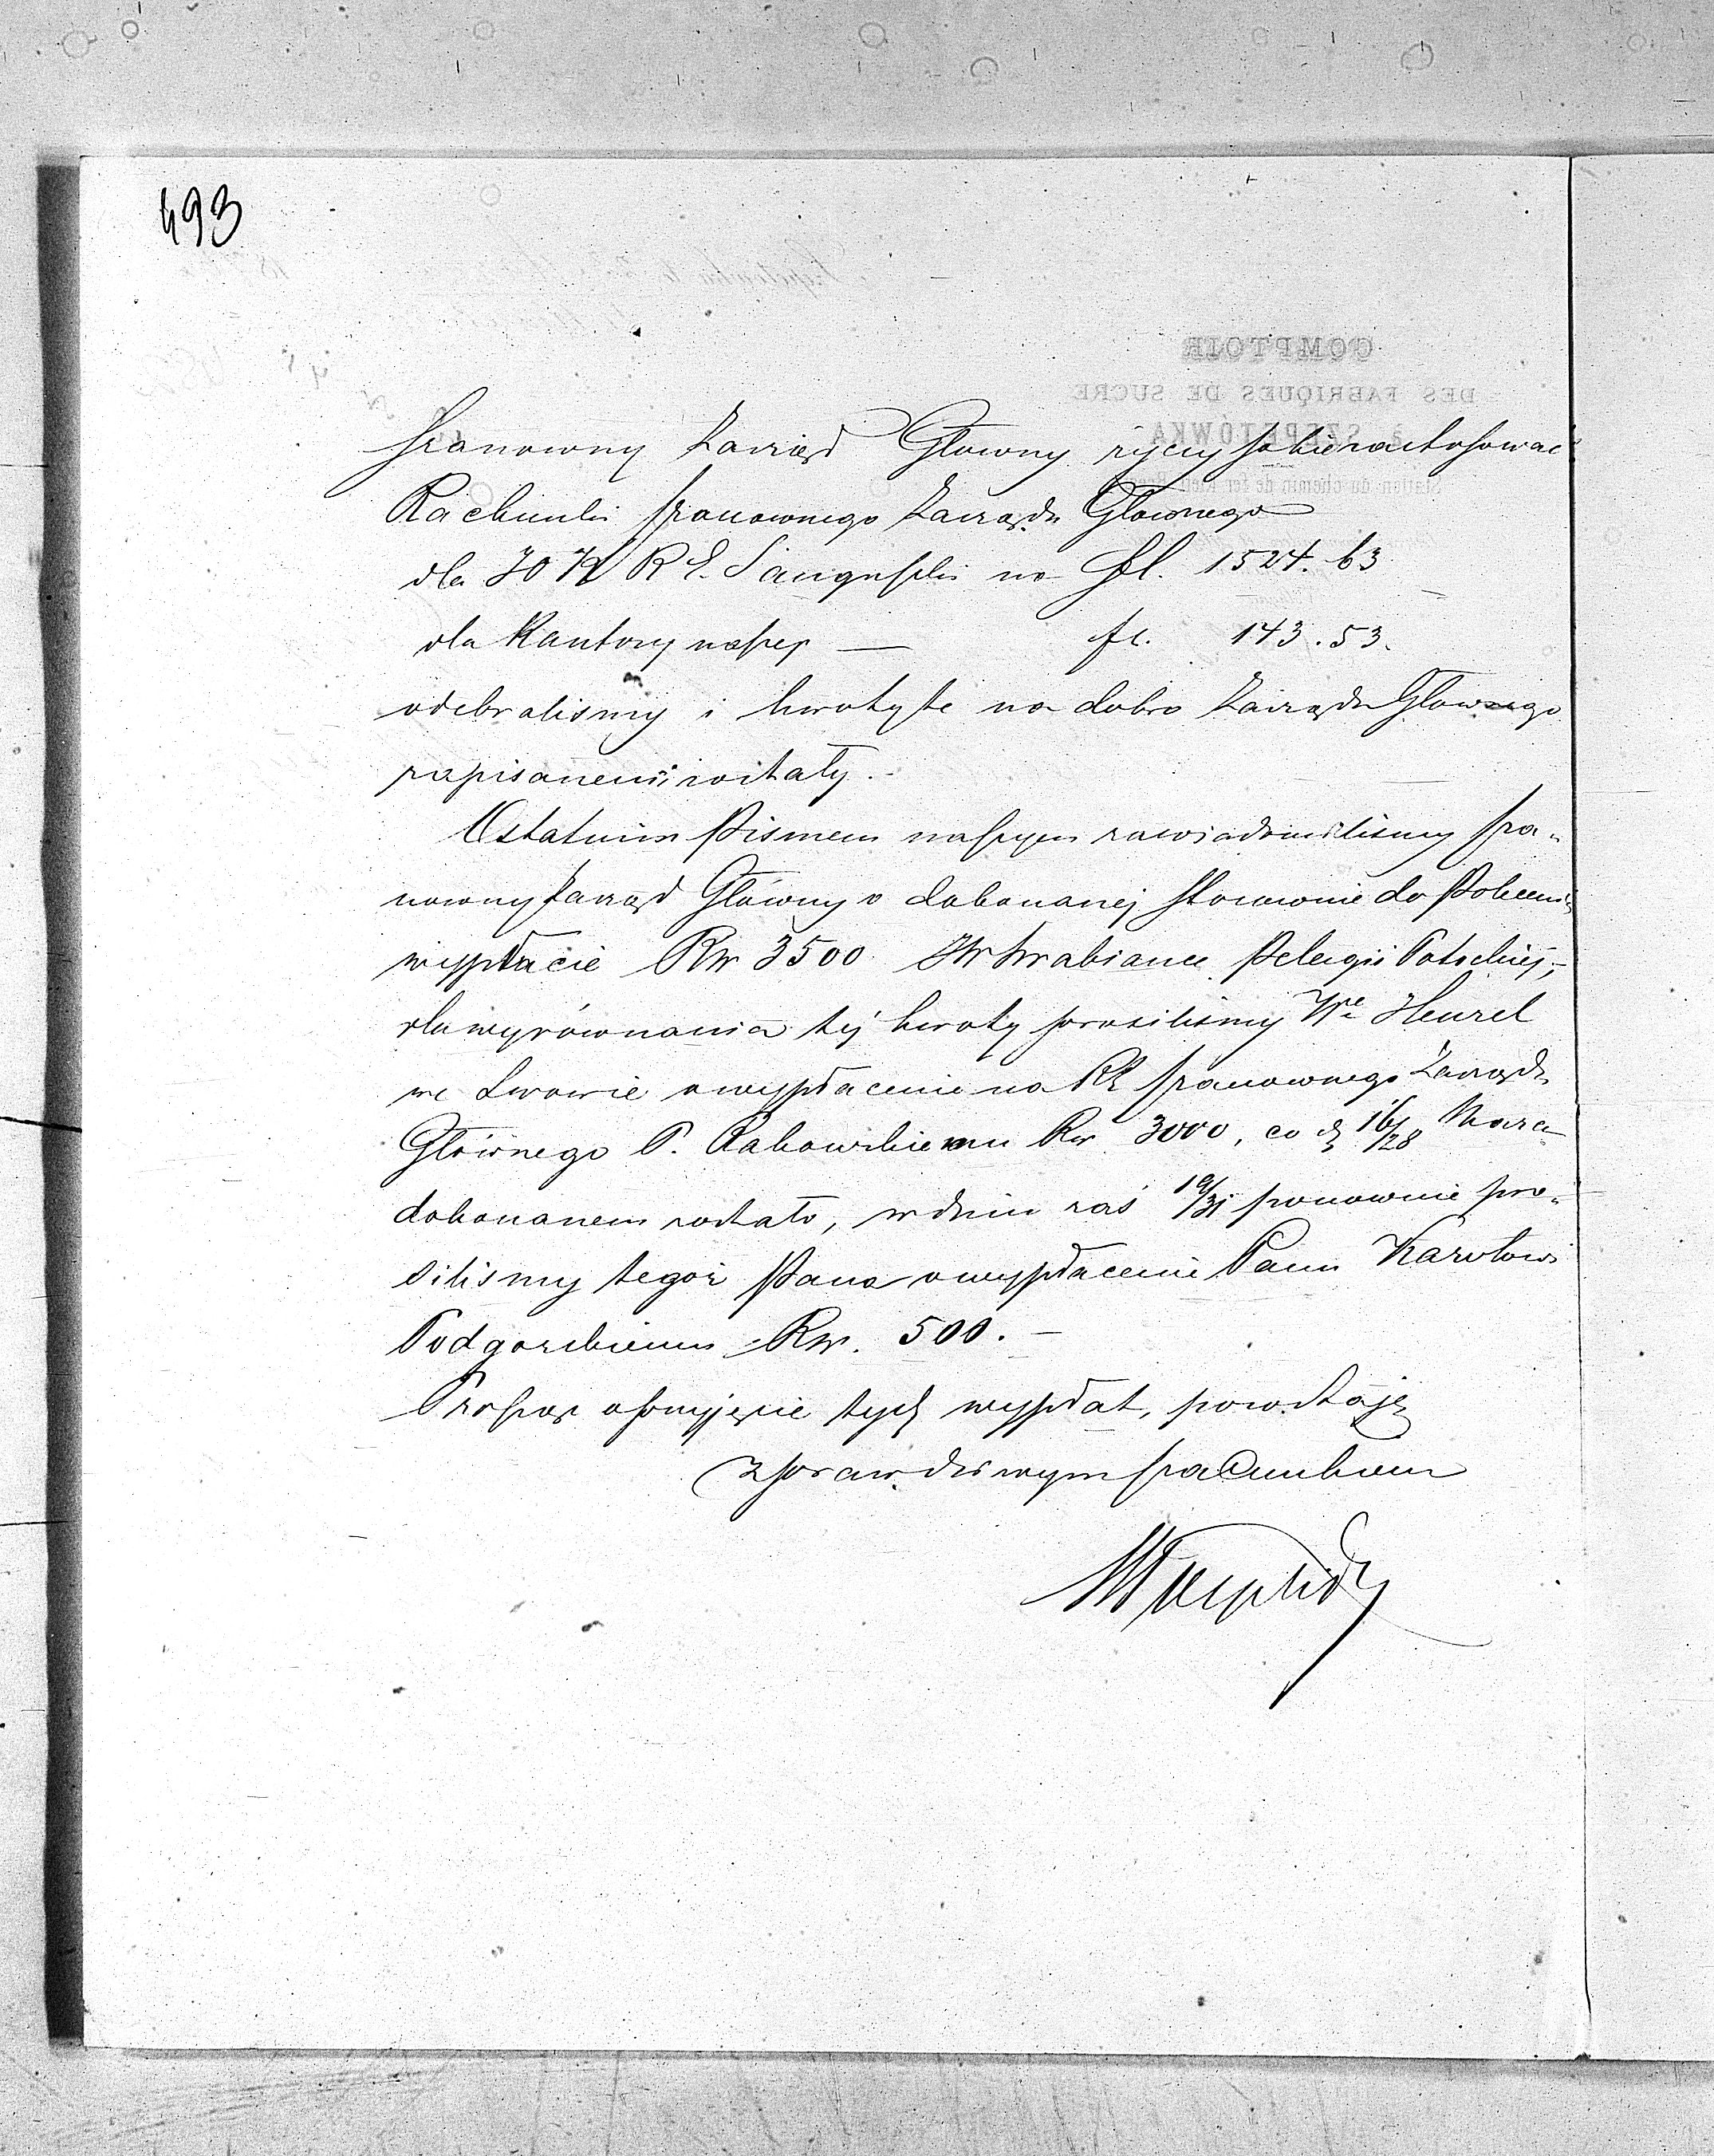 493
Szanowny Zarząd Główny życzy sobie zastosować
Rachunki szanownego Zarządu Głównego
dla JO X R E. Sanguszki na fl. 1524.63
dla Kantory naszej — fl. 143.53.
odebraliśmy i kwoty te na dobro Zarządu Głównego
zapisanemi zostały.
Ostatnim Pismem naszym zawiadomiliśmy sza-
nowny Zarząd Główny o dokonanej stosownie do Polecenia
wypłacie Rsr 3500 JW hrabiance Pelagii Potockiéj,
dla wyrównania téj kwoty prosiliśmy We Henzel
we Lwowie o wypłacenie na RE szanownego Zarządu
Głównego P. Rakowskiemu Rsr 3000, co d. 16/28 Marca
dokonanem zostało, w dniu zaś 19/31 ponownie pro-
siliśmy tegoż Pana o wypłacenie Panu Karolowi
Podgorskiemu Rsr. 500.—
Prosząc o przyjęcie tych wypłat, pozostaję
z prawdziwym szacunkiem
COMPTOIR
DES FABRIQUES DE SUCRE
à SZEPETÓWKA
Station du chemin de fer